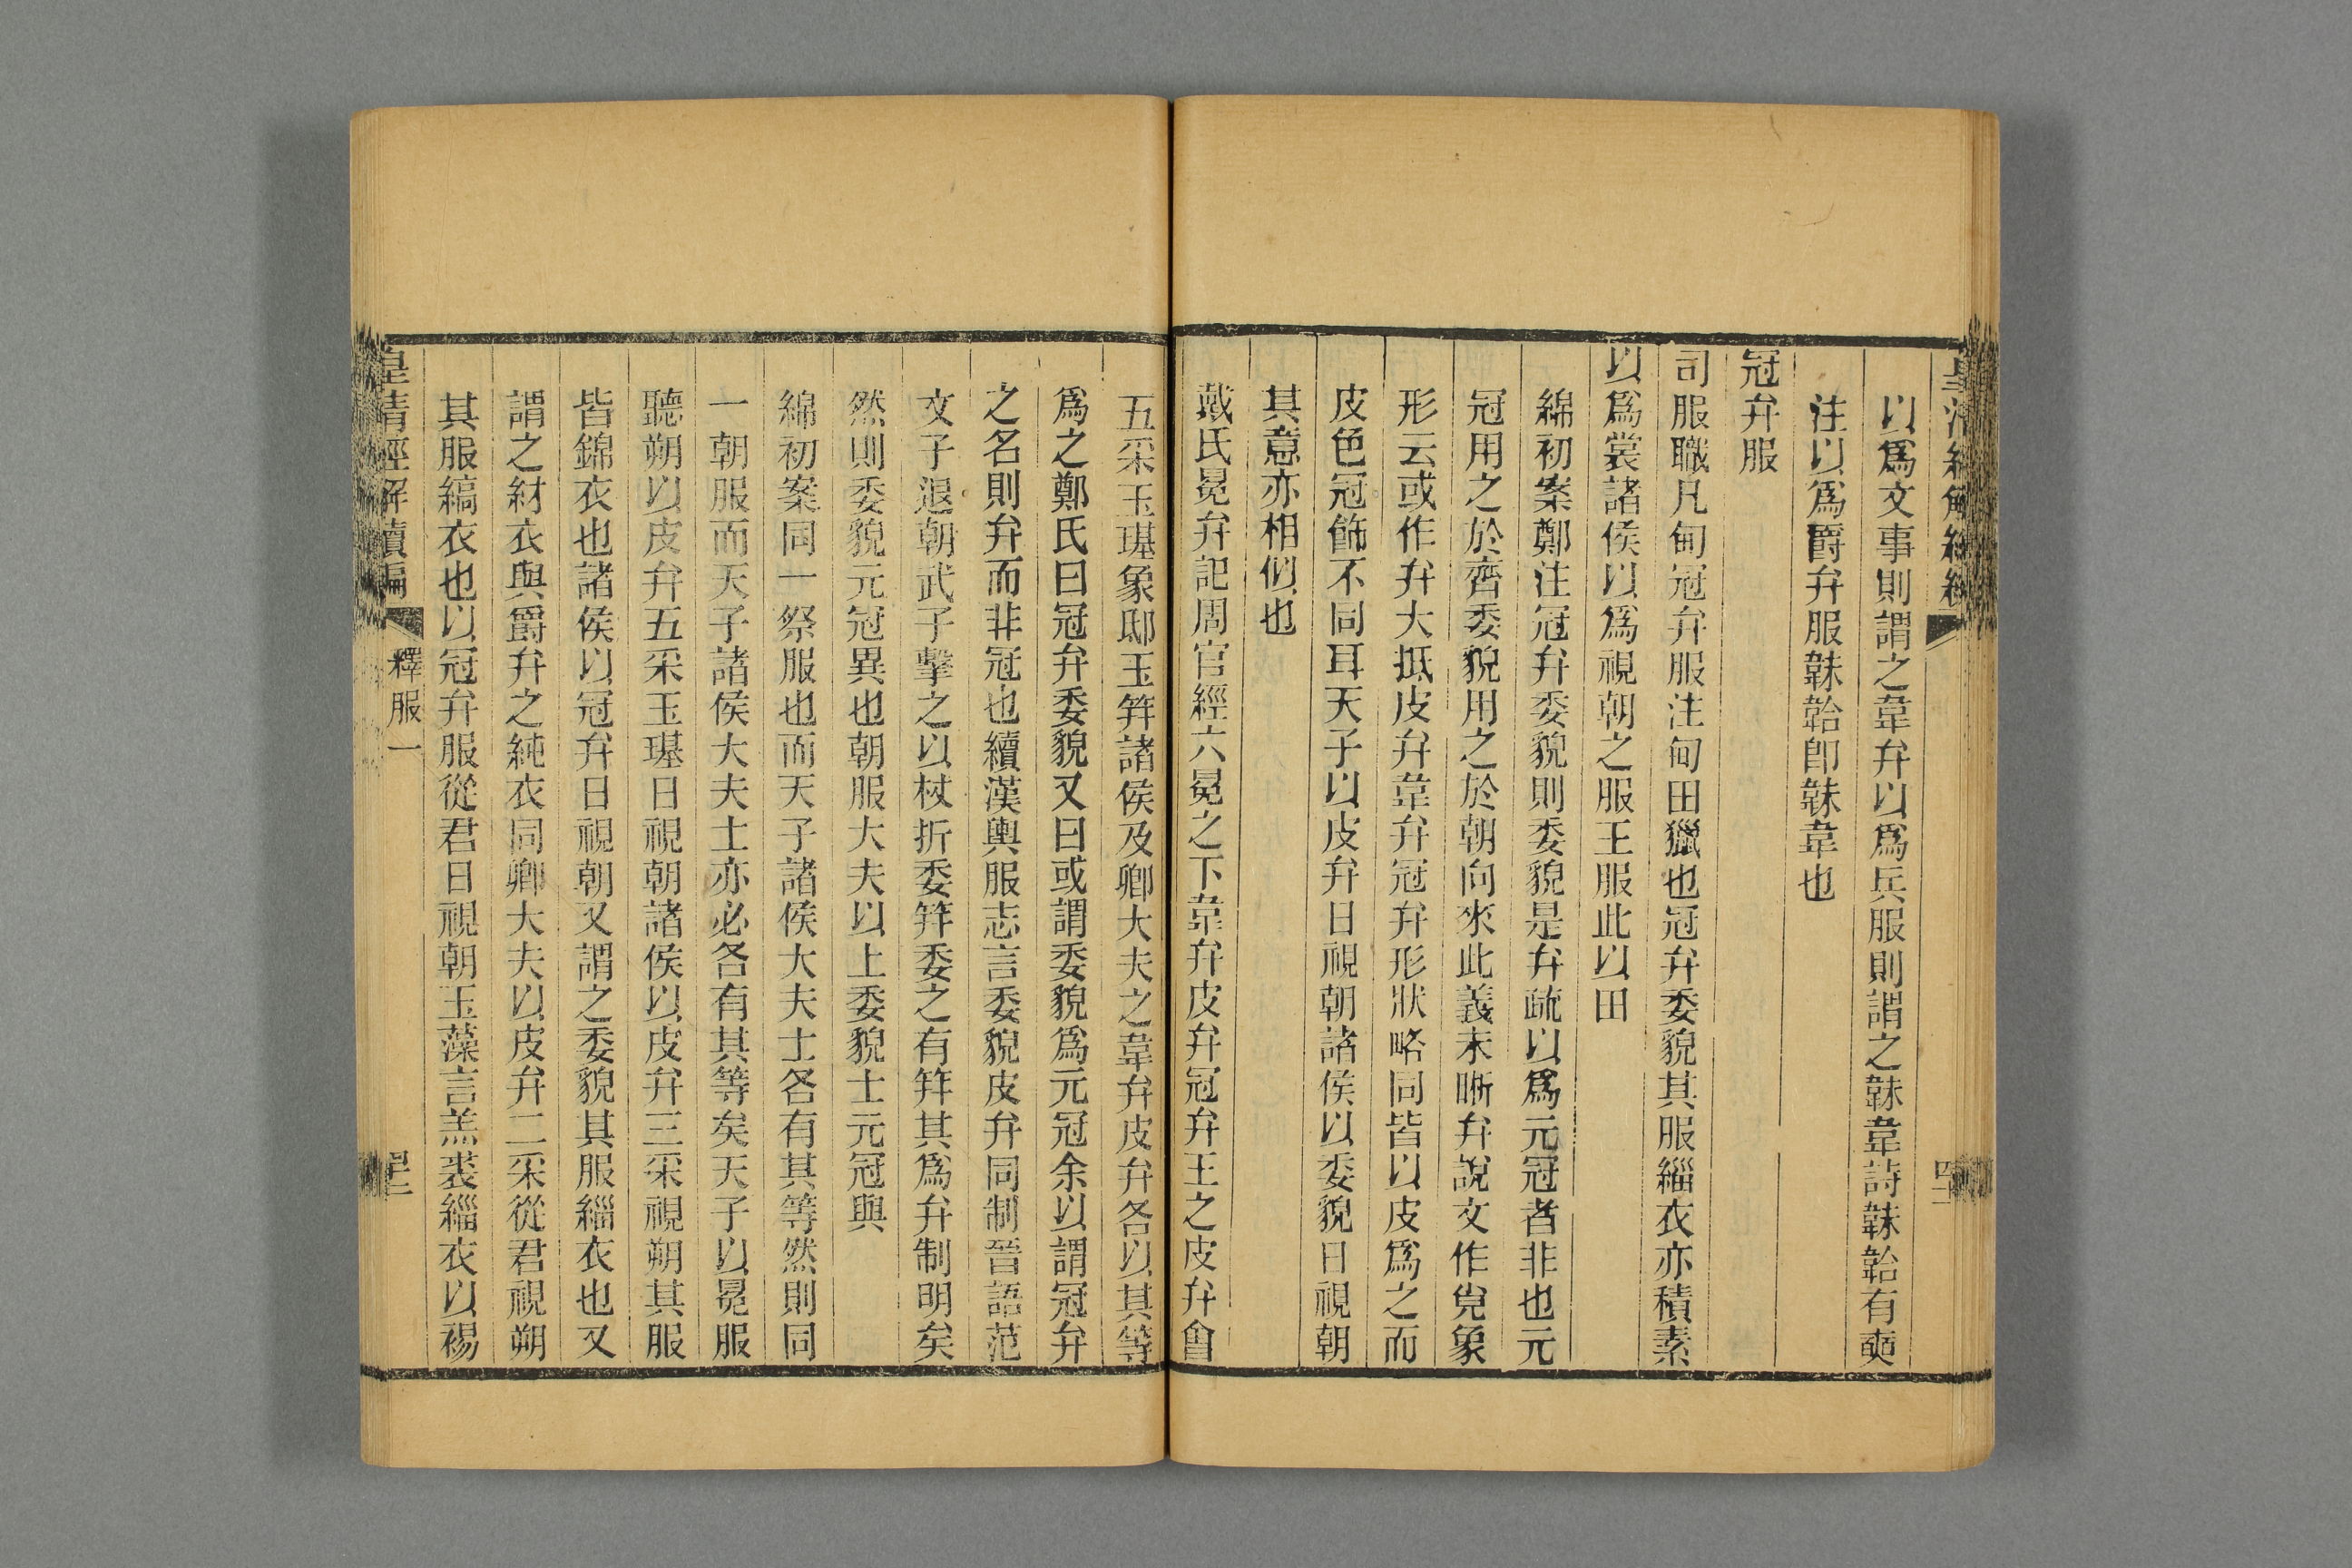 以爲文事則謂之韋弁以爲兵服則謂之韎韋詩韎韐有奭
注以爲爵弁服韎韐卽韎韋也
冠弁服
司服職凡甸冠弁服注甸田獵也冠弁委貌其服緇衣亦積素
以爲裳諸侯以爲視朝之服王服此以田
綿初案鄭注冠弁委貌則委貌是弁疏以爲元冠者非也元
冠用之於齊委貌用之於朝向來此義未晰弁說文作㝸象
形云或作弁大抵皮弁韋弁冠弁形狀略同皆以皮爲之而
皮色冠飾不同耳天子以皮弁日視朝諸侯以委貌日視朝
其意亦相似也
戴氏冕弁記周官經六冕之下韋弁皮弁冠弁王之皮弁會
五采玉璂象邸玉笄諸侯及卿大夫之韋弁皮弁各以其等
爲之鄭氏曰冠弁委貌又曰或謂委貌爲元冠余以謂冠弁
之名則弁而非冠也續漢輿服志言委貌皮弁同制晉語范
文子退朝武子擊之以杖折委笄委之有笄其爲弁制明矣
然則委貌元冠異也朝服大夫以上委貌士元冠與
綿初案同一祭服也而天子諸侯大夫士各有其等然則同
一朝服而天子諸侯大夫士亦必各有其等矣天子以冕服
聽朔以皮弁五采玉璂日視朝諸侯以皮弁三采視朔其服
皆錦衣也諸侯以冠弁日視朝又謂之委貌其服緇衣也又
謂之紂衣與爵弁之純衣同卿大夫以皮弁二采從君視朔
其服縞衣也以冠弁服從君日視朝玉藻言羔裘緇衣以裼
皇清經解續編 釋服一